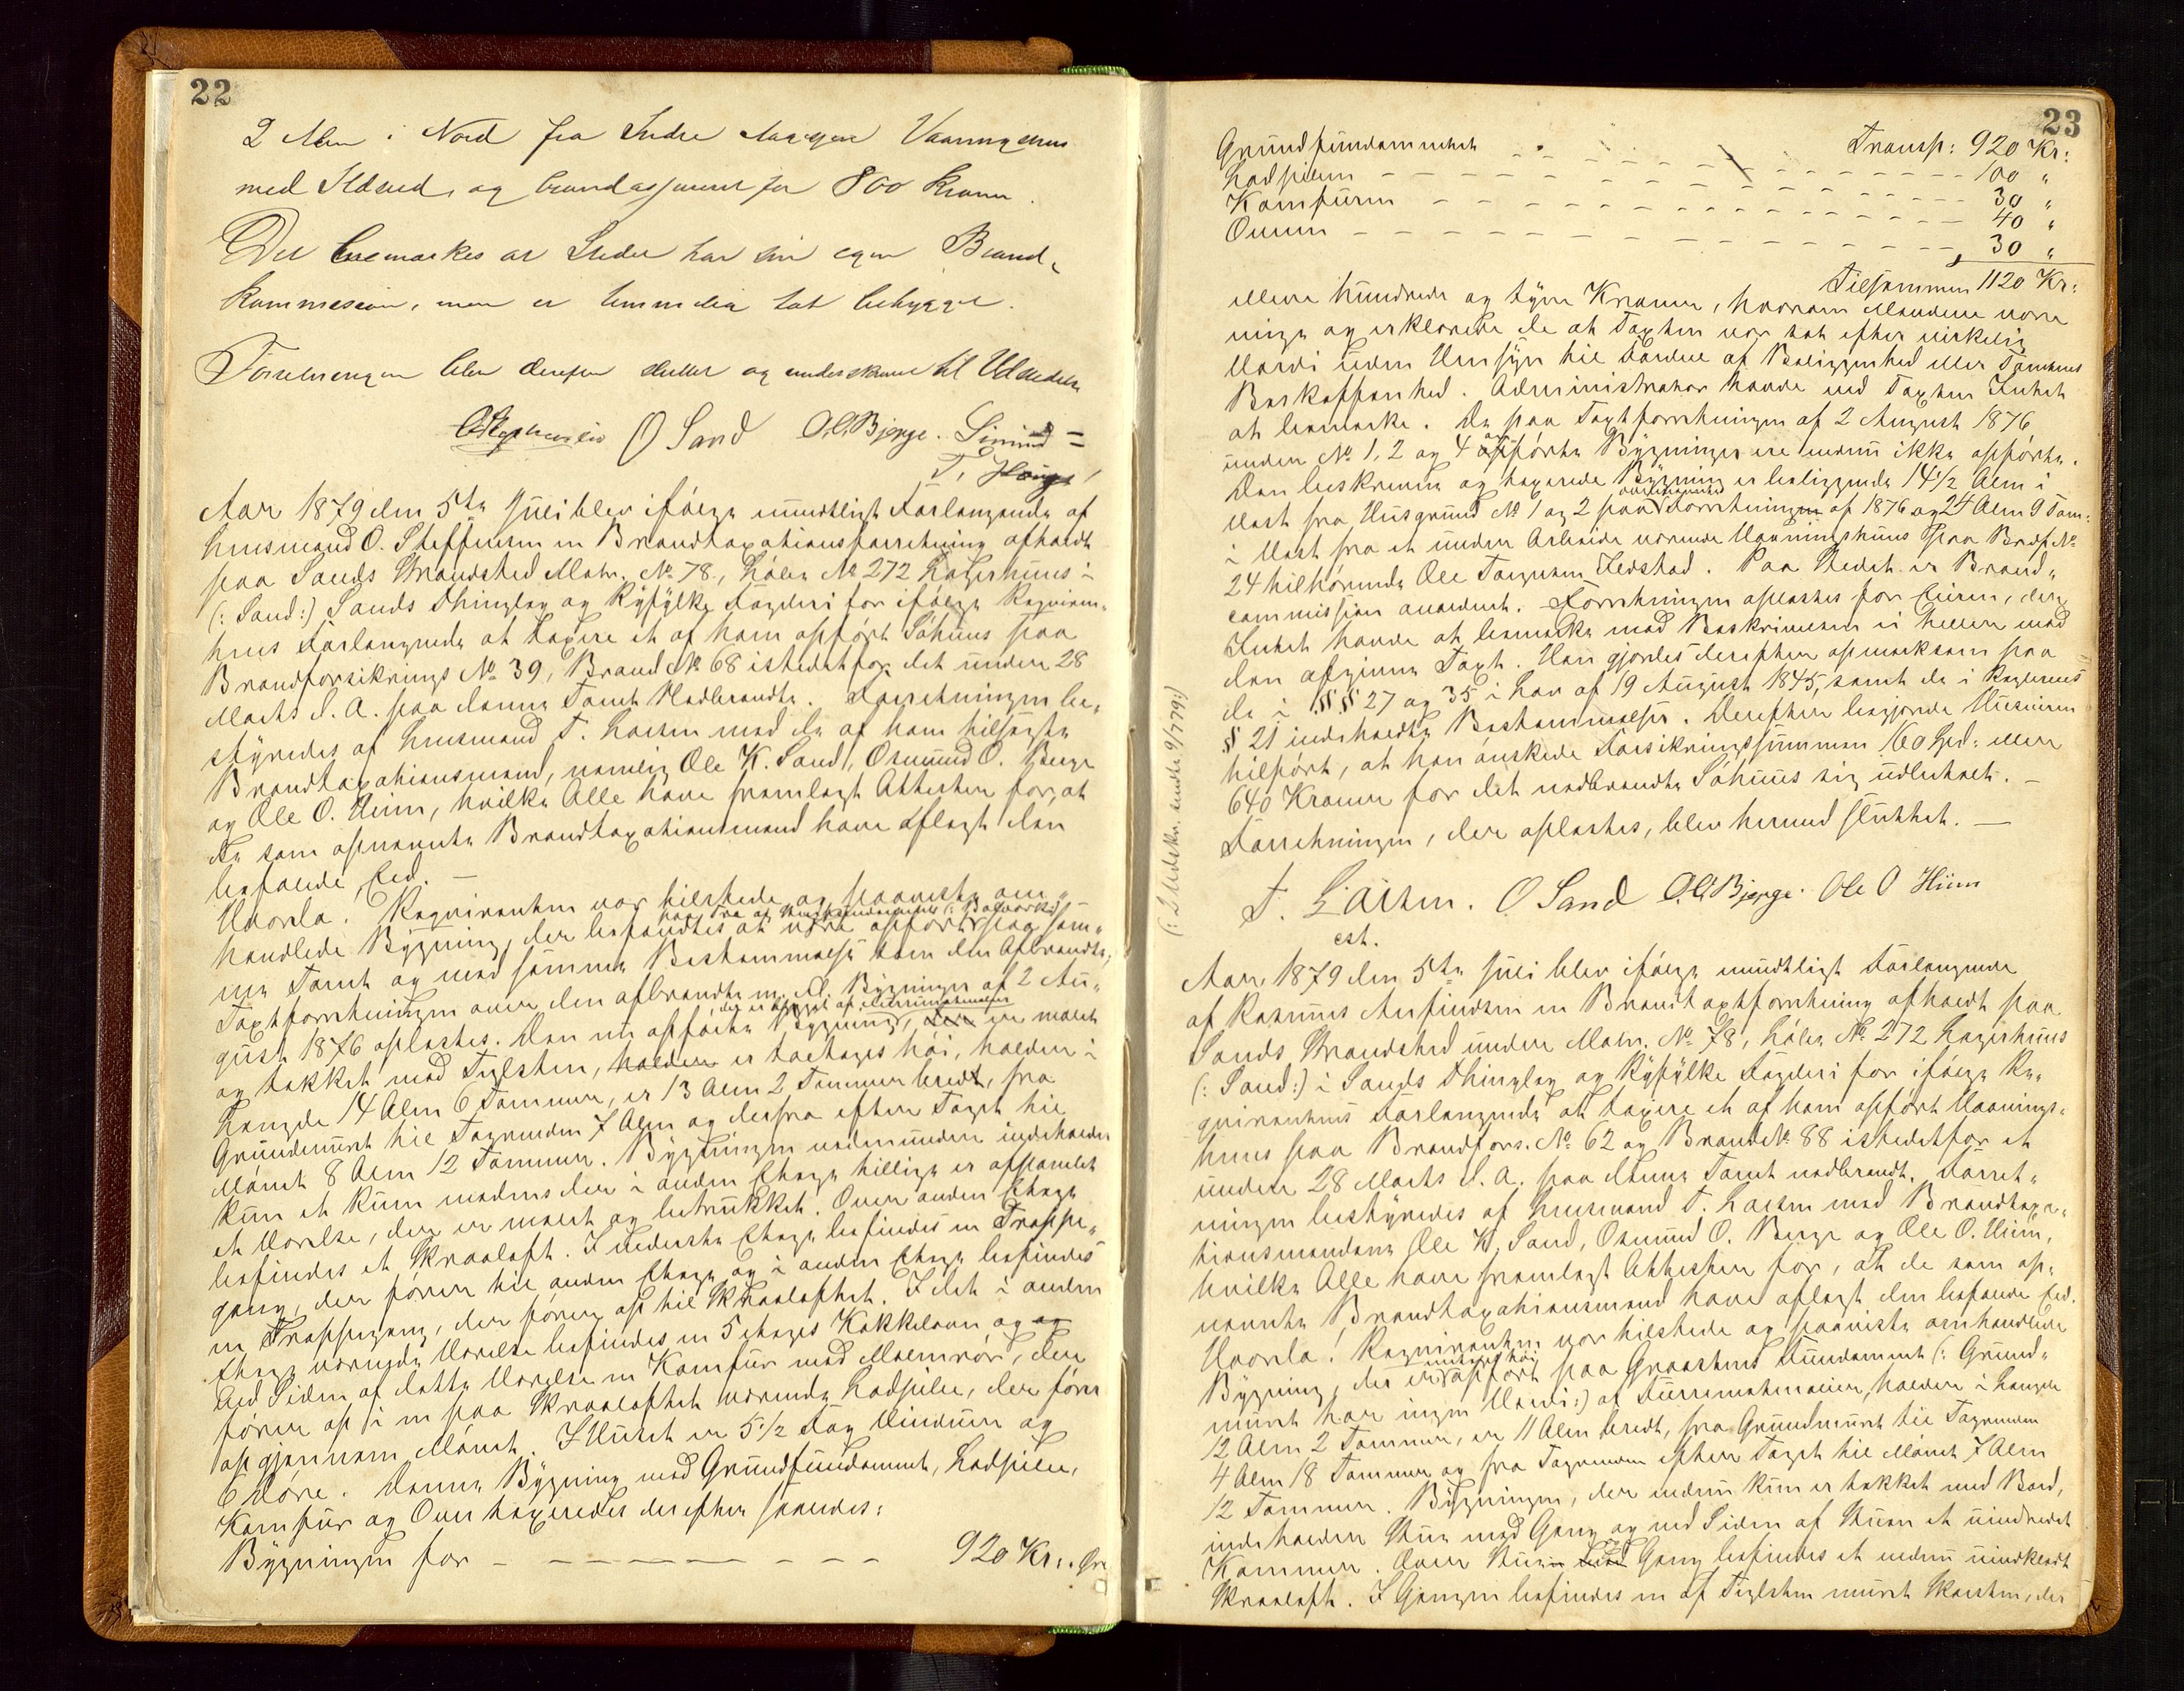 22
2 Alen i Nord fra Andre Aasgers Vaaningshus
med Ildsted, og brandassureret for 800 Kroner.
Det bemærkes at Stedet har sin egen Brand-
kommission, men er temmelig tæt bebygget.
Forretningen blev derefter sluttet og underskrevet til Udstedelse
O Sand O.O. Bjerge. Simund =
T. Hauge
Aar 1879 den 5te Juli blev ifølge mundtligt Forlangende af
Lensmand O. Steffensen en Brandtaxationsforretning afholdt
paa Sands Strandsted Matr. № 78, Løbe № 272 Lagerhuus i
(: Sand:) Sands Thinglag og Ryfylke Fogderi for ifølge Reqviren-
tens Forlangende at taxere et af ham opført Søhuus paa
Brandforsikrings № 39, Brand № 68 istedetfor det under 28
Marts d. A. paa denne Tomt Nedbrændte. Forretningen be-
styredes af Lensmand T. Larsen med de af ham tilsagte
Brandtaxationsmænd, nemlig Ole K. Sand, Osmund O. Berge
og Ole O. Hiim, hvilke Alle have fremlagt Attester for, at
de som opnævnte Brandtaxationsmænd have aflagt den
befalede Eed. —
Hvorda! Reqvirenten var tilstede og paaviste om-
handlede Bygning, der befandtes at være opført paa sam-
me Tomt og med samme Bestemmelse som den Afbrændte,
Taxtforretningen over den afbrændte m. fl. Bygninger af 2 Au-
der er bygget af Furrumaterialer
gust 1876 oplæstes. Den nu opførte Bygning, er malet
og tækket med Teglsten, holder er toetages høi, holder i
Længde 14 Alen 6 Tommer, er 13 Alen 2 Tommer bredt, fra
Grundmuret til Tagrenden 7 Alen og derfra efter Taget til
Mønet 8 Alen 12 Tommer. Bygningen nedenunder indeholder
kun et Rum medens der i anden Etage tillige er afpanelet
et Værelse, der er malet og betrukket. Over anden Etage
befindes et Skraaloft. I nederste Etage befindes en Trappe-
gang, der fører til anden Etage og i anden Etage befindes
en Trappegang, der fører op til Skraaloftet. I det i anden
Etage værende Værelse befindes en 5 etages Kakkelovn og
ved Siden af dette Værelse en Komfur med Malmrør, der
fører op i en paa Skraaloftet værende Ladpibe, der fører
op gjennem Mønet. I Huset er 5½ Fag Vinduer og
6 Døre. Denne Bygning med Grundfundament, Ladpibe,
Komfur og Ovn taxeredes derefter saaledes:
Bygningen for — — — — — — — 920 Kr. Øre
23
Transp: 920 Kr:
Grundfundamentet — — — — — 100 „
Ladpiben — — — — — — — 30 „
Komfuren — — — — — — — 40 „
Ovnen — — — — — — — — 30 „
Tilsammen 1120 Kr:
elleve hundrede og tyve Kroner, hvorom Mændene vare
enige og erklærede de at Taxten var sat efter virkelig
Værdi uden Hensyn til Fordele af Beliggenhed eller Tomtens
Beskaffenhed. Administrator havde ved Taxten Intet
at bemærke. De paa Taxtforretningen af 2 August 1876
under № 1, 2 og 4 opførte Bygninger ere endnu ikke opførte.
Den beskrevne og taxerede Bygning er beliggende 14½ Alen i
Vest fra Husgrund № 1 og 2 paa Forretningen af 1876 og 24 Alen 9 Tom:
i Vest fra et under Arbeide værende Vaaningshuus paa Brdf №
24 tilhørende Ole Torgersen Edstad. Paa Stedet er Brand-
commission anordnet. Forretningen oplæstes for Eieren, der
Intet havde at bemærke mod Beskrivelsen ei heller mod
den afgivne Taxt. Han gjordes derefter opmærksom paa
de i §§ 27 og 35 i Lov af 19 August 1845, samt de i Reglernes
§ 21 indeholdte Bestemmelser. Derefter begjærede Huseieren
tilført, at han ønskede Forsikringssummen 160 Spd: eller
640 Kroner for det nedbrændte Søhuus sig udbetalt. —
Forretningen, der oplæstes, blev hermed sluttet. —
T. Larsen. O Sand O.O. Bjerge. Ole O Hiim
cst.
(: 2 Udskr. sendte 9/7 79:)
Aar 1879 den 5te Juli blev ifølge mundtligt Forlangende
af Rasmus Anfindsen en Brandtaxtforretning afholdt paa
Sands Strandsted under Matr. № 78, Løbe № 272 Lagerhuus
(: Sand:) i Sands Thinglag og Ryfylke Fogderi for ifølge Re-
qvirentens Forlangende at taxere et af ham opført Vaanings-
huus paa Brandfors. № 62 og Brand № 88 istedetfor et
under 28 Marts d. A. paa denne Tomt nedbrændt. Forret-
ningen bestyredes af Lensmand T. Larsen med Brandtaxa-
tionsmændene Ole K. Sand, Osmund O. Berge og Ole O. Hiim,
hvilke Alle have fremlagt Attester for, at de som op-
nævnte Brandtaxationsmænd have aflagt den befalede Eed.
Hvorda! Reqvirenten var tilstede og paaviste omhandlede
Bygning, der er opført paa Graastens Fundament (: Grund-
muret har ingen Værdi:) af Furrematerialier, holder i Længde
12 Alen 2 Tommer, er 11 Alen bredt, fra Grundmuret til Tagrenden
4 Alen 18 Tommer og fra Tagrenden efter Taget til Mønet 7 Alen
12 Tommer. Bygningen, der endnu kun er tækket med Bord,
indeholder Stue med Gang og ved Siden af Stuen et uindredet
Kammer. Over Stue og Gang befindes et endnu uindklædt
Skraaloft. I Gangen befindes en af Teglsten muret Skorsten, der